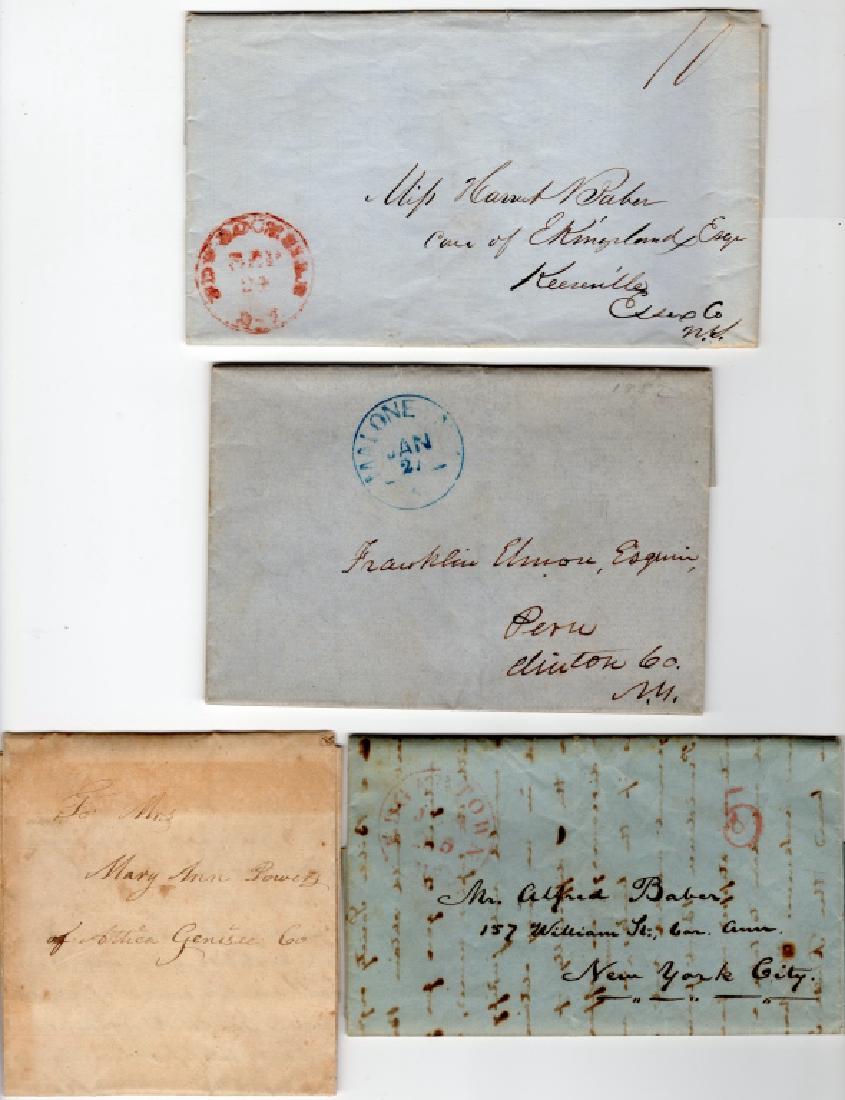 10
Miss Harriet N Baber
Care of E Kingsland, Esqr
Keeseville
Essex Co
N.Y.
SEP
24
1852
MALONE
JAN
21
Franklin Elmore, Esquire,
Peru
Clinton Co.
N.Y.
To Mrs
Mary Ann Powers
of Attica Genisee Co
5
Mr. Alfred Baber,
157 William St., Cor. Ann.
New York City.